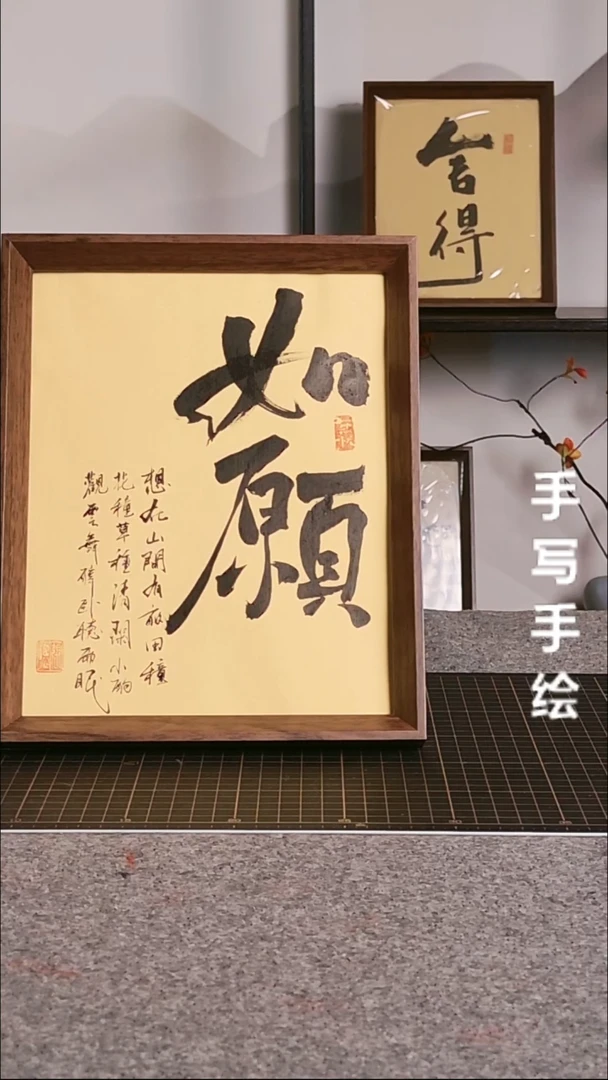 如
願
想在山間有畝田種
花種草種清閑小酌
觀雲舞醉卧聽雨眠
舍
得
手写手绘